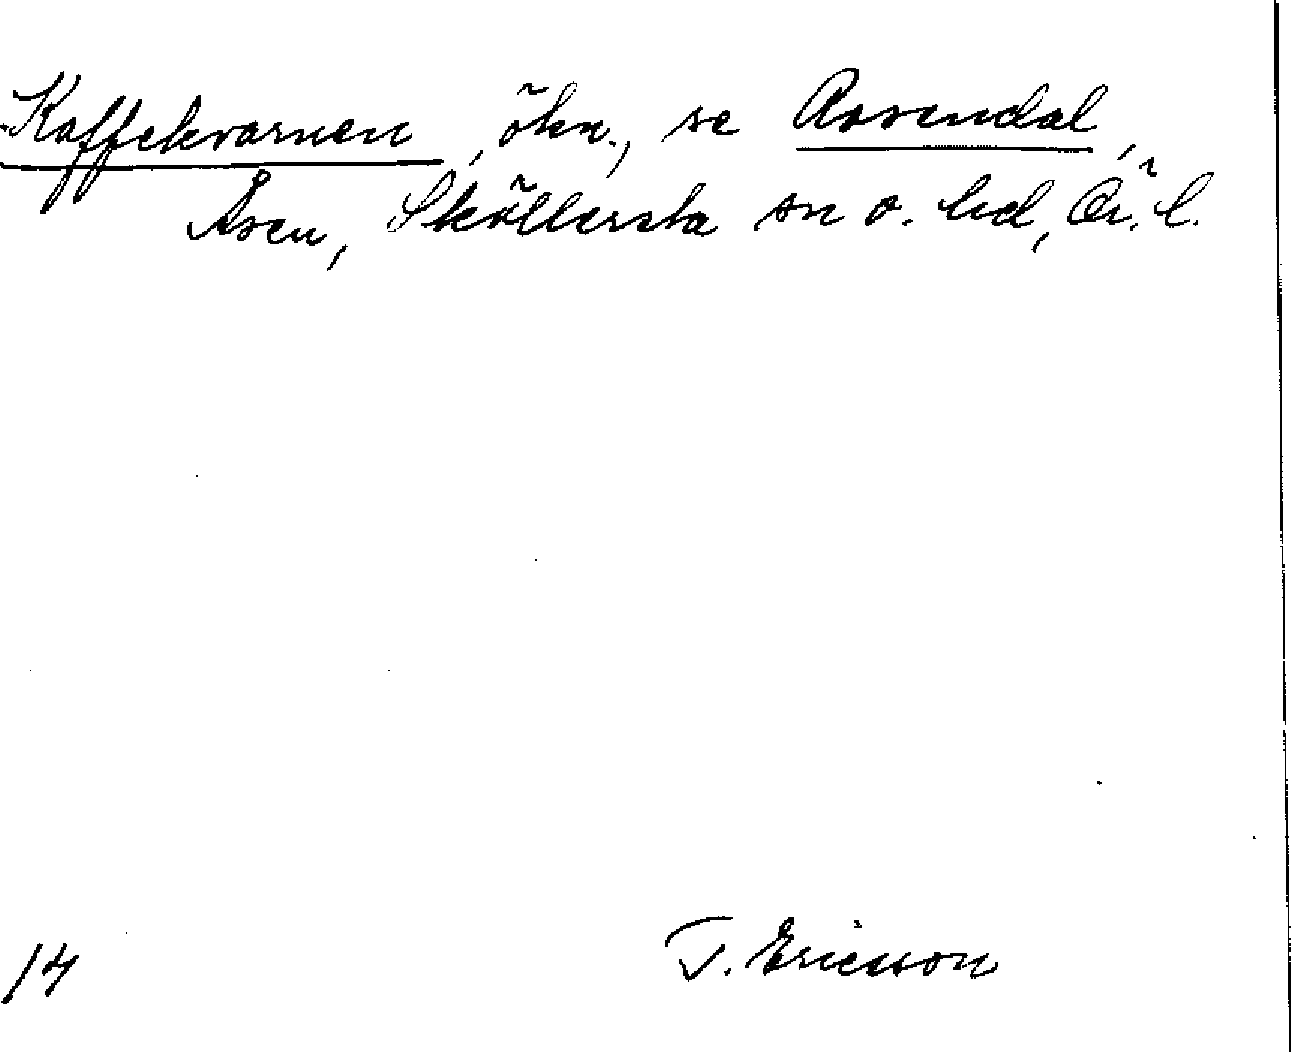 Kaffekvarnen, ökn., se Rosendal,
Åsen, Sköllersta sn o. hd, Ör. l.
14
T. Ericsson